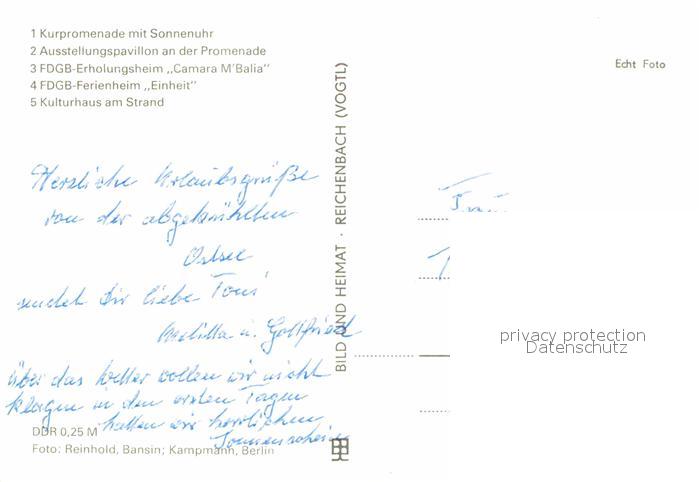 1 Kurpromenade mit Sonnenuhr
2 Ausstellungspavillon an der Promenade
3 FDGB-Erholungsheim „Camara M'Balia"
4 FDGB-Ferienheim „Einheit"
5 Kulturhaus am Strand
Herzliche Urlaubsgrüße
von der abgekühlten
Ostsee
sendet Dir liebe Toni
Melitta u. Gottfried
über das Wetter wollen wir nicht
klagen in den ersten Tagen
hatten wir herrlichen
Sonnenschein
DDR 0,25 M
Foto: Reinhold, Bansin; Kampmann, Berlin
BILD UND HEIMAT · REICHENBACH (VOGTL)
Echt Foto
privacy protection
Datenschutz